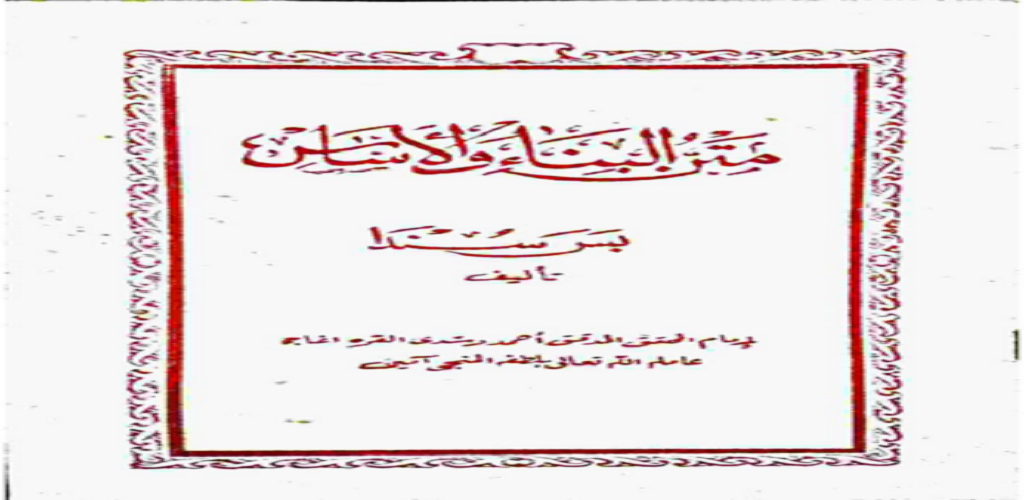 متن البناء والأساس
بس سندا
تأليف
للإمام المحقق المدقق أحمد رشدى القره اغاجى
عامله الله تعالى بلطفه المنجى آمين